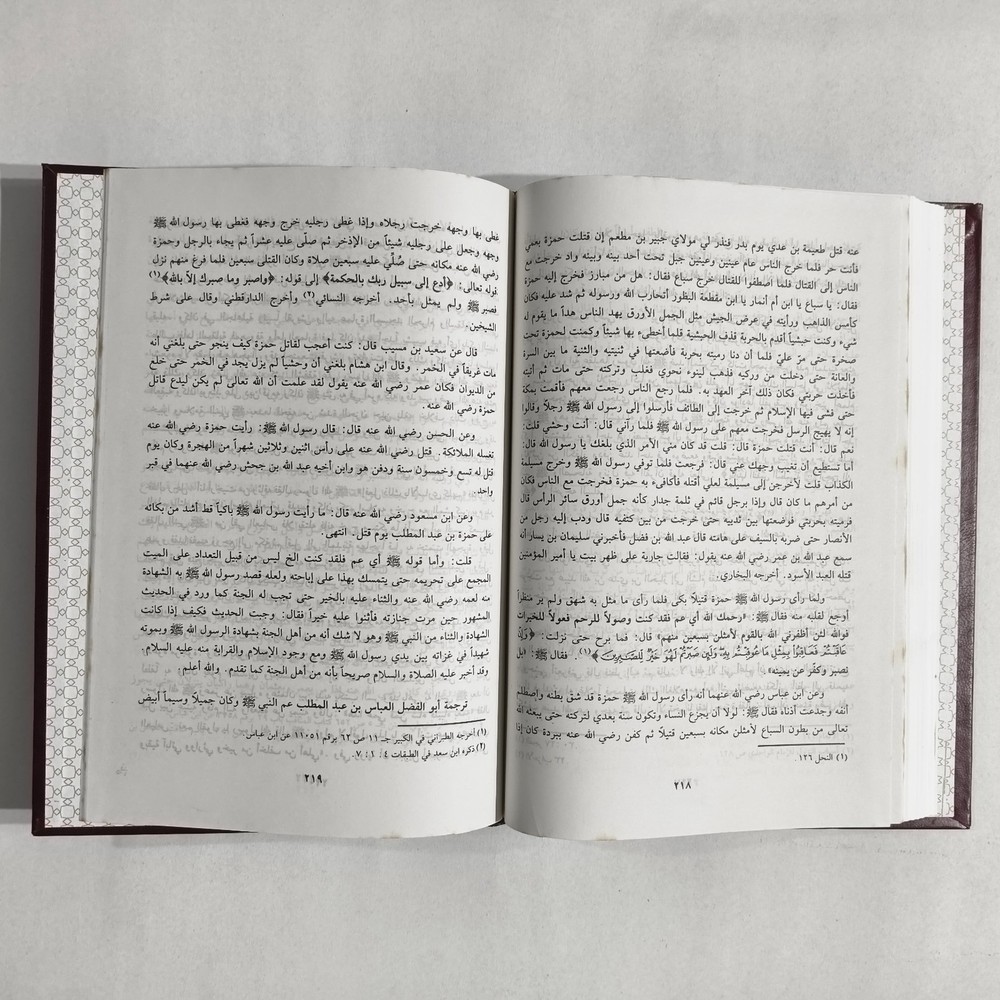 عنه قتل طعيمة بن عدي يوم بدر فنذر لي مولاي جبير بن مطعم إن قتلت حمزة بعمي
فأنت حر فلما خرج الناس عام عينين وعينين جبل تحت أحد بينه وبينه واد خرجت مع
الناس إلى القتال فلما اصطفوا للقتال خرج سباع فقال: هل من مبارز فخرج إليه حمزة
فقال: يا سباع يا ابن أم أنمار يا ابن مقطعة البظور أتحارب الله ورسوله ثم شد عليه فكان
كأمس الذاهب ورأيته في عرض الجيش مثل الجمل الأورق يهد الناس هداً ما يقوم له
شيء وكنت حبشياً أقدم بالحربة قذف الحبشية فلما أخطىء بها شيئاً وكمنت لحمزة تحت
صخرة حتى مرّ عليّ فلما أن دنا رميته بحربة فأضعتها في ثنيتيه والثنية ما بين السرة
والعانة حتى دخلت من وركيه فذهب لينوء نحوي فغلب وتركته حتى مات ثم أتيته
فأخذت حربتي فكان ذلك آخر العهد به. فلما رجع الناس رجعت معهم فأقمت بمكة
حتى فشى فيها الإسلام ثم خرجت إلى الطائف فأرسلوا إلى رسول الله ﷺ رجلاً وقالوا
إنه لا يهيج الرسل فخرجت معهم على رسول الله ﷺ فلما رآني قال: أنت وحشي قلت:
نعم قال: أنت قتلت حمزة قال: قلت قد كان مني الأمر الذي بلغك يا رسول الله قال:
أما تستطيع أن تغيب وجهك عني قال: فرجعت فلما توفي رسول الله ﷺ وخرج مسيلمة
الكذاب قلت لأخرجن إلى مسيلمة لعلي أقتله فأكافىء به حمزة فخرجت مع الناس فكان
من أمرهم ما كان قال وإذا برجل قائم في ثلمة جدار كأنه جمل أورق سائر الرأس قال
فرميته بحربتي فوضعتها بين ثدييه حتى خرجت من بين كتفيه قال ودب إليه رجل من
الأنصار حتى ضربه بالسيف على هامته قال عبد الله بن فضل فأخبرني سليمان بن يسار أنه
سمع عبد الله بن عمر رضي الله عنه يقول: فقالت جارية على ظهر بيت يا أمير المؤمنين
قتله العبد الأسود. أخرجه البخاري.
ولما رأى رسول الله ﷺ حمزة قتيلاً بكى فلما رأى ما مثل به شهق ولم ير منظراً
أوجع لقلبه منه فقال ﷺ: «رحمك الله أي عم فقد كنت وصولاً للرحم فعولاً للخيرات
فوالله لئن أظفرني الله بالقوم لأمثلن بسبعين منهم» قال: فما برح حتى نزلت: ﴿وَإِنْ
عَاقَبْتُمْ فَعَاقِبُوا بِمِثْلِ مَا عُوقِبْتُم بِهِ وَلَئِن صَبَرْتُمْ لَهُوَ خَيْرٌ لِّلصَّابِرِينَ﴾(١). فقال ﷺ: «بل
نصبر وكفر عن يمينه»
وعن ابن عباس رضي الله عنهما أنه رأى رسول الله ﷺ حمزة قد شق بطنه واصطلم
أنفه وجدعت أذناه فقال ﷺ: لولا أن يجزع النساء وتكون سنة بعدي لتركته حتى يبعثه الله
تعالى من بطون السباع لأمثلن مكانه بسبعين قتيلاً ثم كفن رضي الله عنه ببردة كان إذا
(١) النحل ١٢٦
٢١٨
غطى بها وجهه خرجت رجلاه وإذا غطى رجليه خرج وجهه فغطى بها رسول الله ﷺ
وجهه وجعل على رجليه شيئاً من الإذخر ثم صلّى عليه عشراً ثم يجاء بالرجل وحمزة
رضي الله عنه مكانه حتى صُلّي عليه سبعين صلاة وكان القتلى سبعين فلما فرغ منهم نزل
قوله تعالى: ﴿أدع إلى سبيل ربك بالحكمة﴾ إلى قوله: ﴿واصبر وما صبرك إلاّ بالله﴾(١)
فصبر ﷺ ولم يمثل بأحد. أخرجه النسائي(٢) وأخرج الدارقطني وقال على شرط
الشيخين.
قال عن سعيد بن مسيب قال: كنت أعجب لقاتل حمزة كيف ينجو حتى بلغني أنه
مات غريقاً في الخمر. وقال ابن هشام بلغني أن وحشياً لم يزل يجد في الخمر حتى خلع
من الديوان فكان عمر رضي الله عنه يقول لقد علمت أن الله تعالى لم يكن ليدع قاتل
حمزة رضي الله عنه.
وعن الحسن رضي الله عنه قال: قال رسول الله ﷺ: رأيت حمزة رضي الله عنه
تغسله الملائكة. قتل رضي الله عنه على رأس اثنين وثلاثين شهراً من الهجرة وكان يوم
قتل له تسع وخمسون سنة ودفن هو وابن أخيه عبد الله بن جحش رضي الله عنهما في قبر
واحد.
وعن ابن مسعود رضي الله عنه قال: ما رأيت رسول الله ﷺ باكياً قط أشد من بكائه
على حمزة بن عبد المطلب يوم قتل. انتهى.
قلت: وأما قوله ﷺ أي عم فلقد كنت الخ ليس من قبيل التعداد على الميت
المجمع على تحريمه حتى يتمسك بهذا على إباحته ولعله قصد رسول الله ﷺ به الشهادة
منه لعمه رضي الله عنه والثناء عليه بالخير حتى تجب له الجنة كما ورد في الحديث
المشهور حين مرت جنازته فأثنوا عليه خيراً فقال: وجبت الحديث فكيف إذا كانت
الشهادة والثناء من النبي ﷺ وهو لا شك أنه من أهل الجنة بشهادة الرسول الله ﷺ وبموته
شهيداً في غزاته بين يدي رسول الله ﷺ مع وجود الإسلام والقرابة منه عليه السلام.
وقد أخبر عليه الصلاة والسلام صريحاً بأنه من أهل الجنة كما تقدم. والله أعلم.
ترجمة أبو الفضل العباس بن عبد المطلب عم النبي ﷺ وكان جميلاً وسيماً أبيض
(١) أخرجه الطبراني في الكبير جـ ١١ ص ٦٢ برقم ١١٠٥١ عن ابن عباس.
(٢) ذكره ابن سعد في الطبقات ٤ : ١ : ٧.
٢١٩